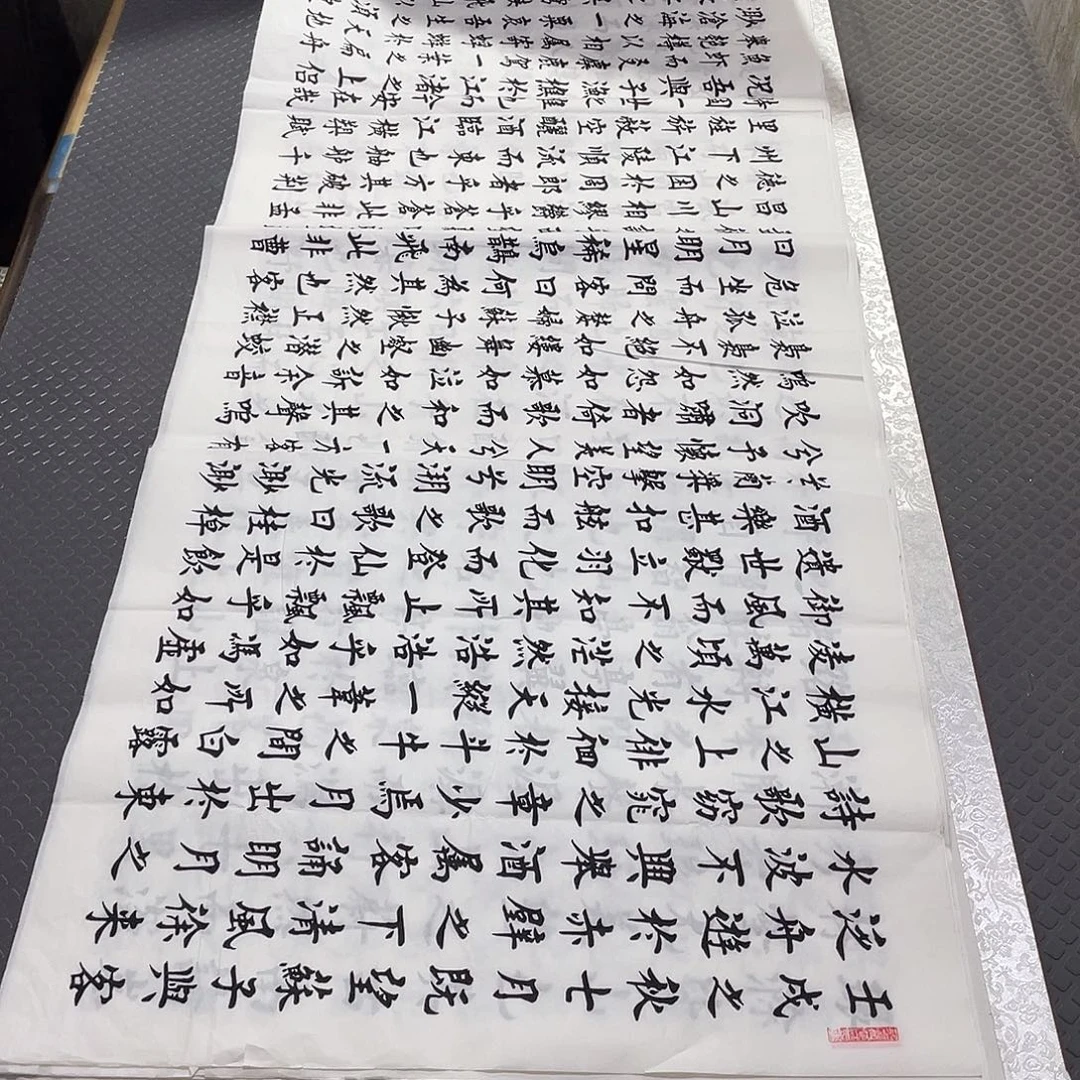 壬戌之秋七月既望蘇子與客
泛舟遊於赤壁之下清風徐來
水波不興舉酒屬客誦明月之
詩歌窈窕之章少焉月出於東
山之上徘徊於斗牛之間白露
橫江水光接天縱一葦之所如
凌萬頃之茫然浩浩乎如馮虛
御風而不知其所止飄飄乎如
遺世獨立羽化而登仙於是飲
酒樂甚扣舷而歌之歌曰桂棹
兮蘭槳擊空明兮泝流光渺渺
兮予懷望美人兮天一方客有
吹洞簫者倚歌而和之其聲嗚
嗚然如怨如慕如泣如訴余音
裊裊不絕如縷舞幽壑之潛蛟
泣孤舟之嫠婦蘇子愀然正襟
危坐而問客曰何為其然也客
曰月明星稀烏鵲南飛此非曹
昌山川相繆鬱乎蒼蒼此非孟
德之困於周郎者乎方其破荊
州下江陵順流而東也舳艫千
里旌旗蔽空釃酒臨江橫槊賦
詩固一世之雄也而今安在哉
況吾與子漁樵於江渚之上侶
魚蝦而友麋鹿駕一葉之扁舟